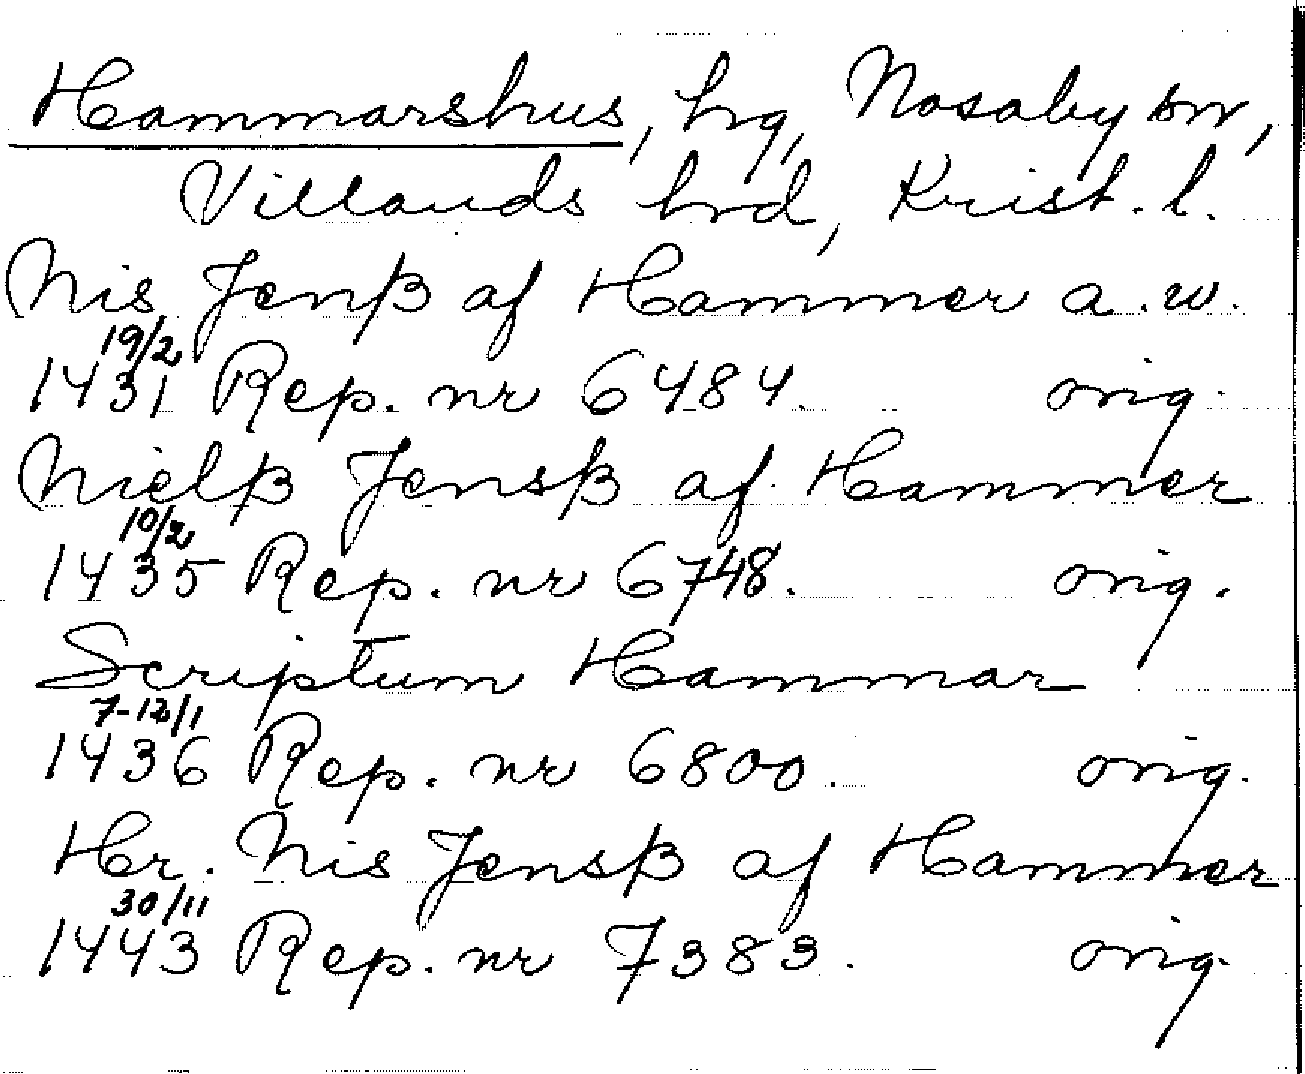 Hammarshus, hrg, Nosaby sn,
Villands hrd, Krist. l.
Nis Jenß af Hammer a.w.
19/2
1431 Rep. nr 6484. orig.
Nielß Jensß af Hammer
10/2
1435 Rep. nr 6748. orig.
Scriptum Hammar
7-12/1
1436 Rep. nr 6800. orig.
Hr. Nis Jensß af Hammer
30/11
1443 Rep. nr 7383. orig.